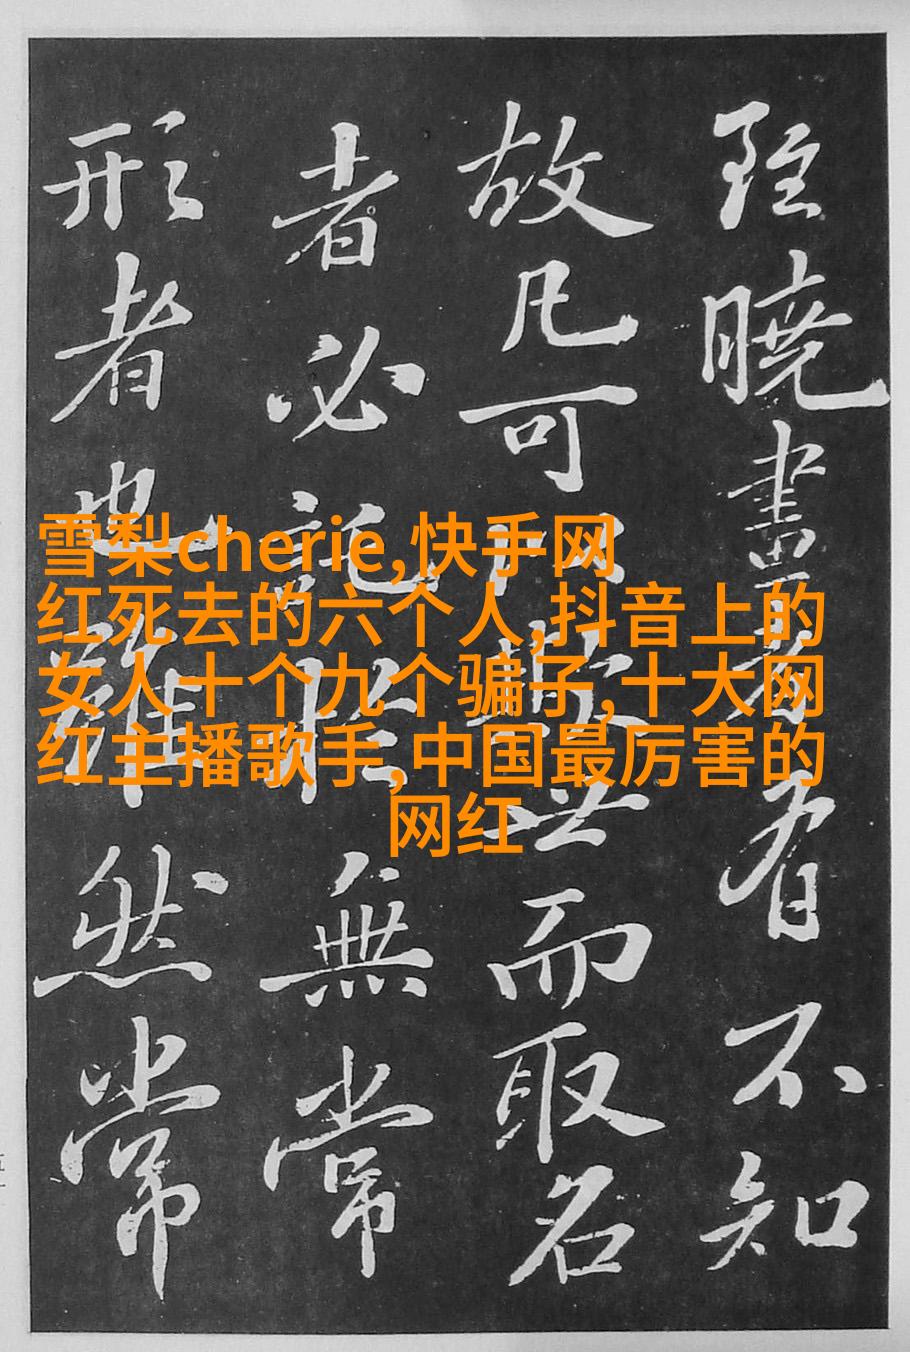 雪梨cherie,快手网
红死去的六个人,抖音上的
女人十个九个骗子,十大网
红主播歌手,中国最厉害的
网红
曉書者有不知
故凡可以世而取名
者必託於無常
形者也雖然常